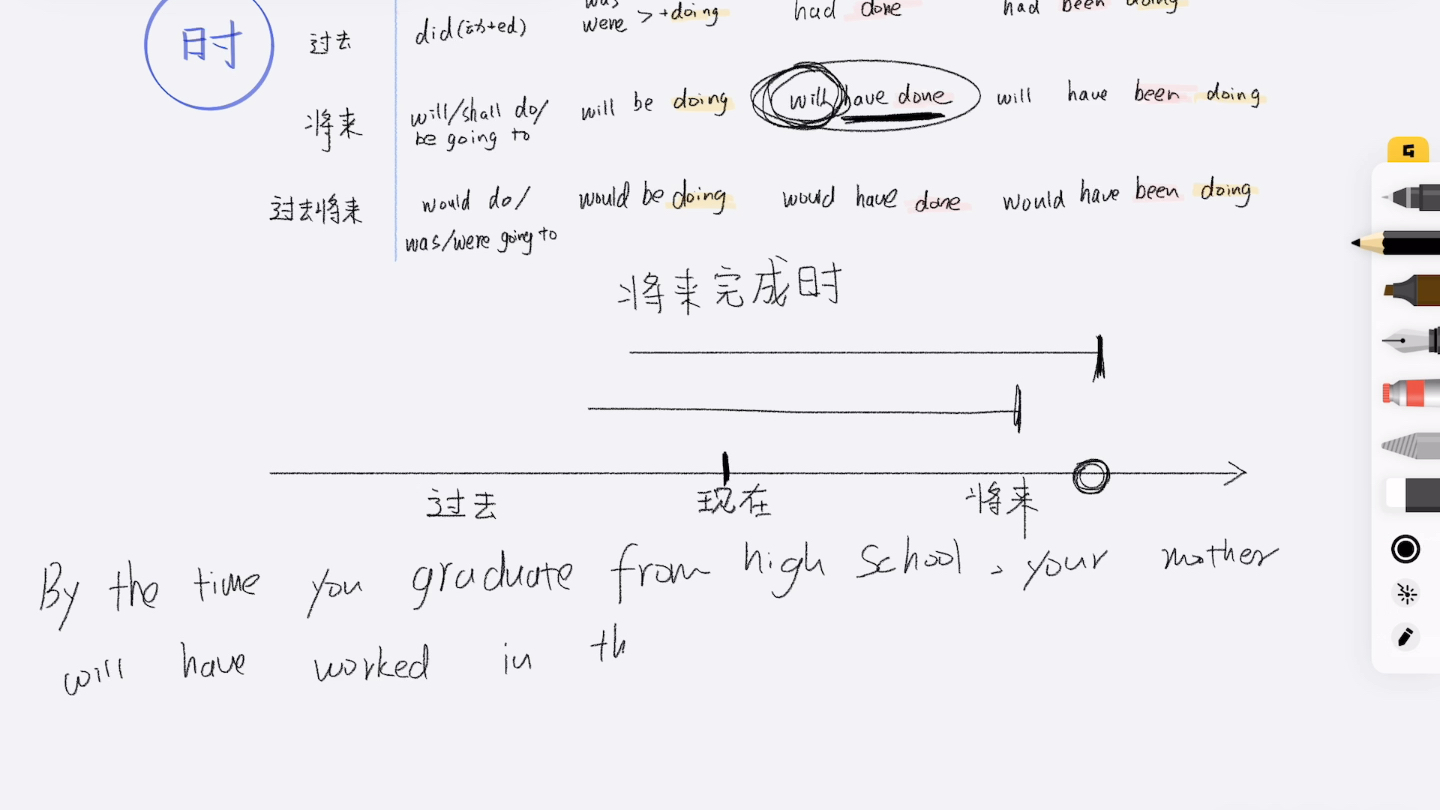 时
过去 did(动+ed) was were > +doing had done had been doing
将来 will/shall do/ be going to will be doing will have done will have been doing
过去将来 would do/ was/were going to would be doing would have done would have been doing
将来完成时
过去 现在 将来
By the time you graduate from high school, your mother
will have worked in th